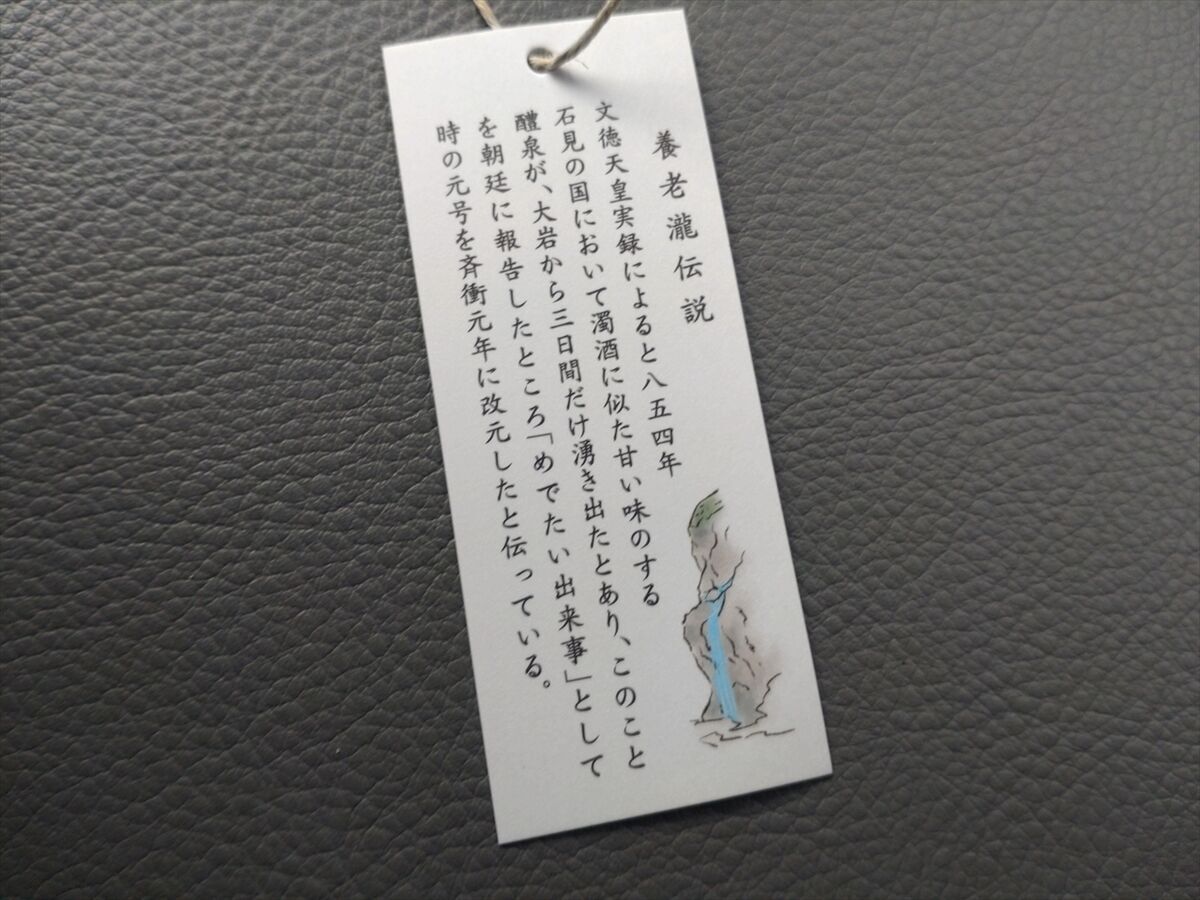 養老瀧伝説
文徳天皇実録によると八五四年
石見の国において濁酒に似た甘い味のする
醴泉が、大岩から三日間だけ湧き出たとあり、このこと
を朝廷に報告したところ「めでたい出来事」として
時の元号を斉衝元年に改元したと伝っている。